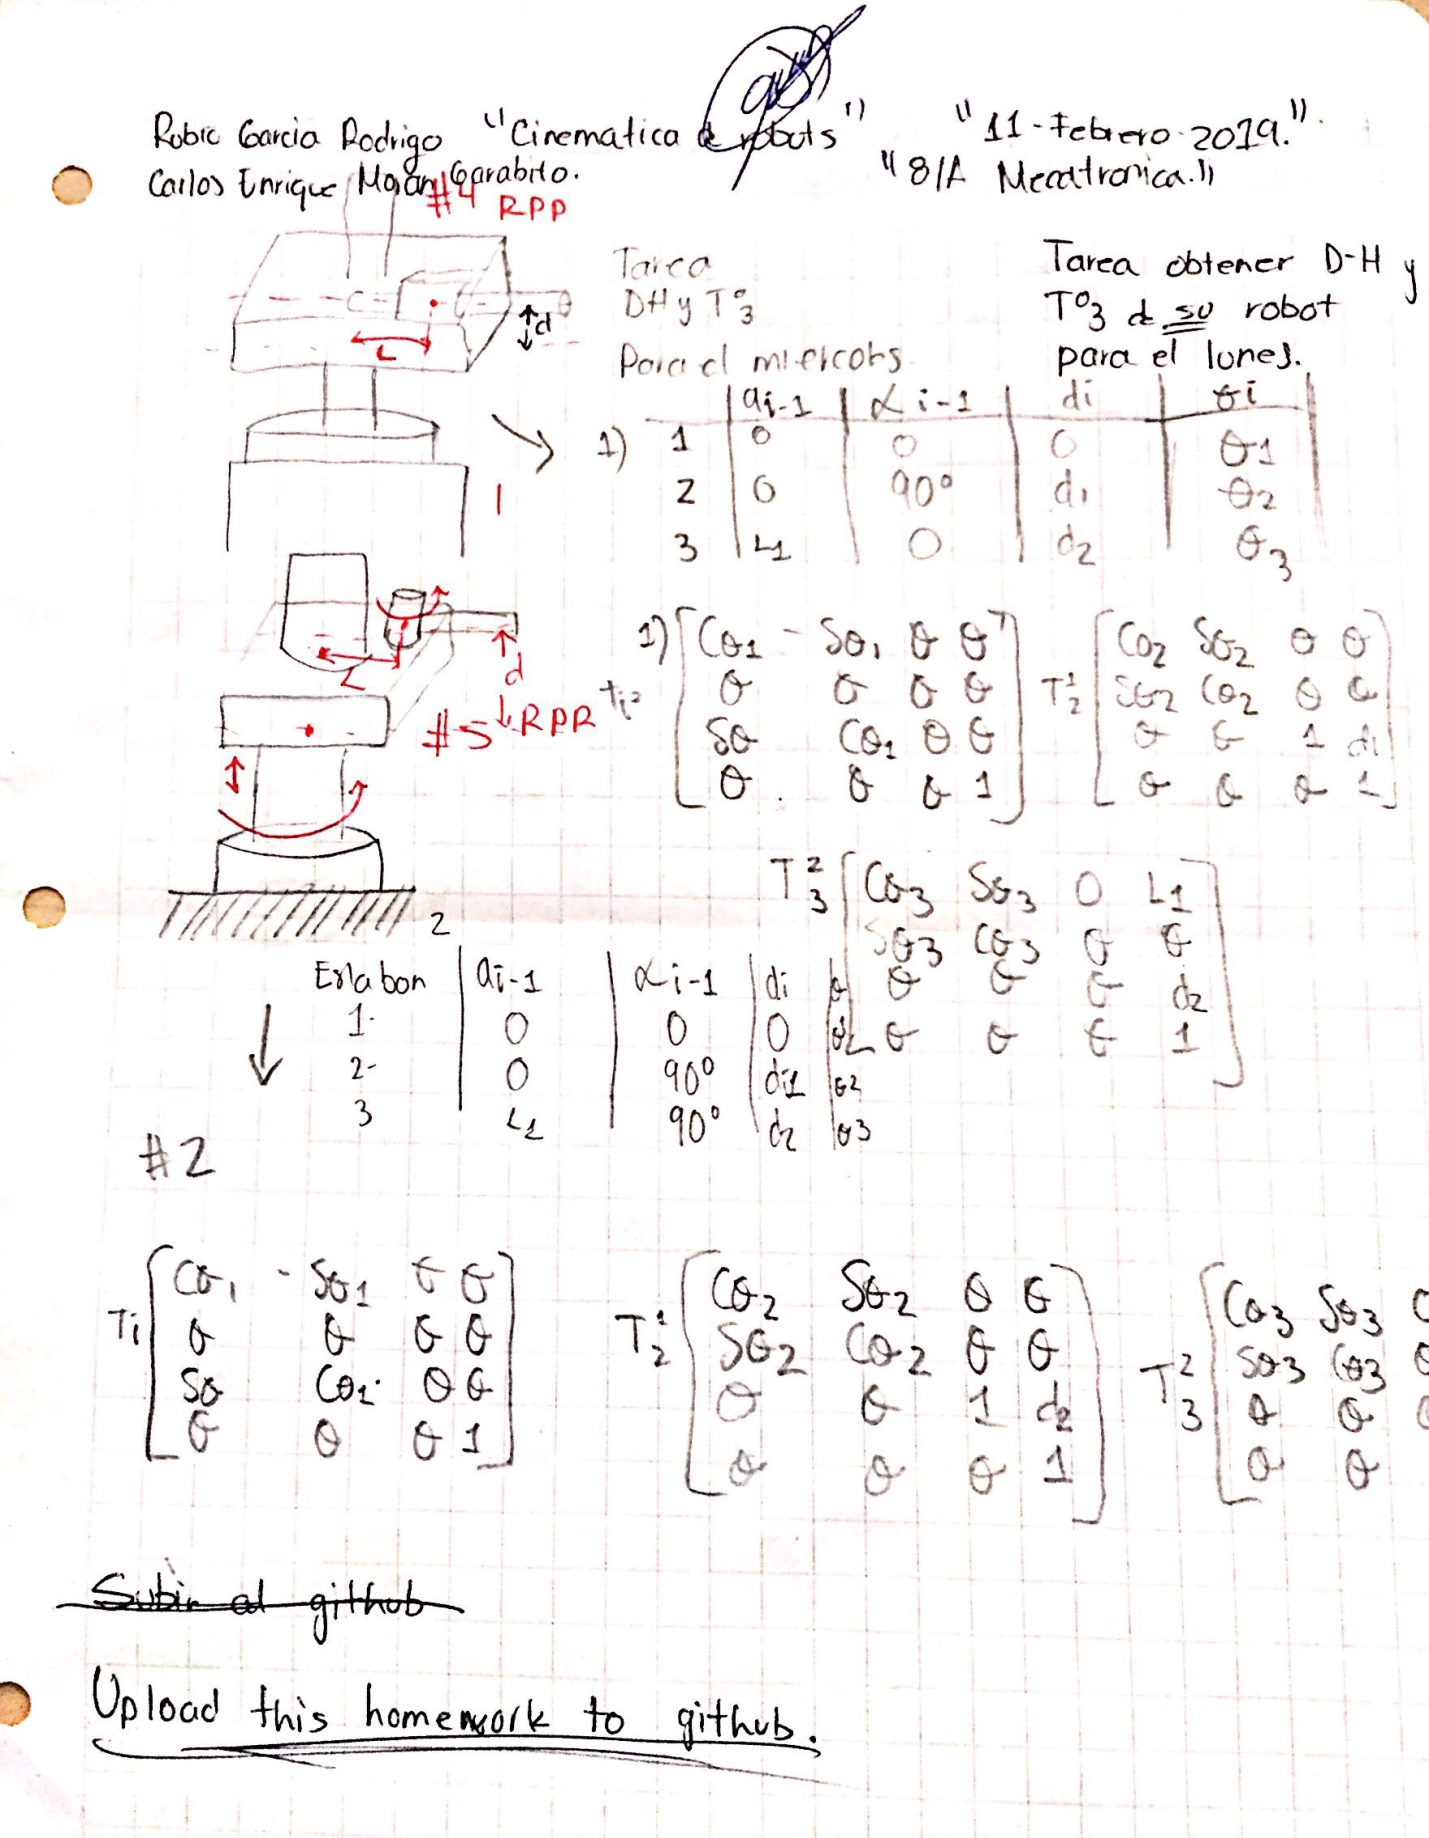 Rubio Garcia Rodrigo "Cinematica de robots" "11-Febrero-2019."
Carlos Enrique Moran Garabito. "8/A Mecatronica."
#4 RPP
Tarea
DH y T°3
Para el miercols
Tarea obtener D-H y
T°3 de su robot
para el lunes.
d
L
ai-1 αi-1 di θi
1) 1 0 0 0 θ1
2 0 90° d1 θ2
3 L1 0 d2 θ3
1
L
d
#5 RPR
1) Cθ1 -Sθ1 0 0
0 0 0 0
Sθ Cθ1 0 0
0 0 0 1
T¹2 Cθ2 Sθ2 0 0
Sθ2 Cθ2 0 0
0 0 1 d1
0 0 0 1
T²3 Cθ3 Sθ3 0 L1
Sθ3 Cθ3 0 0
0 0 0 d2
0 0 0 1
2
Eslabon ai-1 αi-1 di θ
1- 0 0 0
2- 0 90° d1 θ2
3 L1 90° d2 θ3
#2
Ti Cθ1 -Sθ1 0 0
0 0 0 0
Sθ Cθ1 0 0
0 0 0 1
T¹2 Cθ2 Sθ2 0 0
Sθ2 Cθ2 0 0
0 0 1 d2
0 0 0 1
T²3 Cθ3 Sθ3
Sθ3 Cθ3
0 0
0 0
Subir al github
Upload this homework to github.